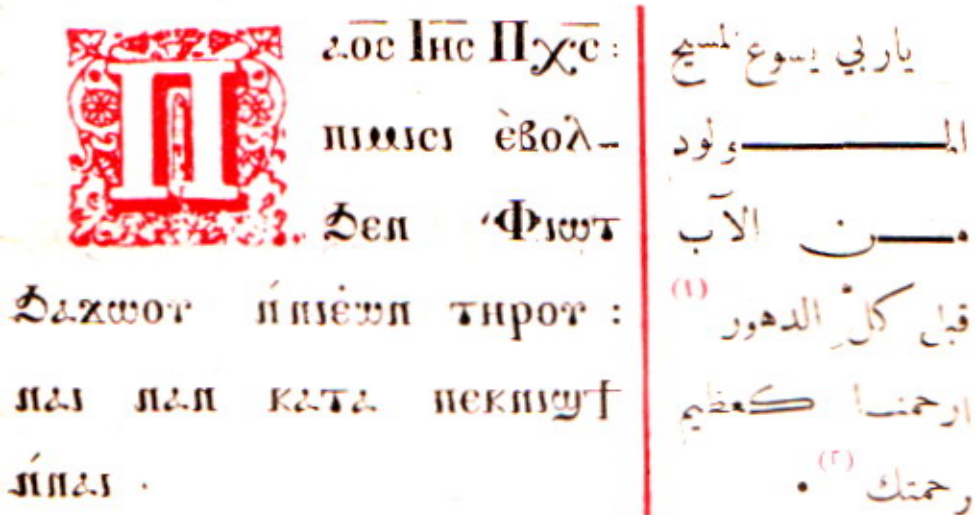 Ⲡⲁⲟ̅ⲥ̅ Ⲓⲏ̅ⲥ̅ Ⲡⲭ̅ⲥ̅ :
ⲡⲓⲙⲓⲥⲓ ⲉ̀ⲃⲟⲗ-
ϧⲉⲛ ̀Ⲫⲓⲱⲧ
ϧⲁϫⲱⲟⲩ ⲛ̀ⲛⲓⲉ̀ⲱⲛ ⲧⲏⲣⲟⲩ :
ⲛⲁⲓ ⲛⲁⲛ ⲕⲁⲧⲁ ⲡⲉⲕⲛⲓϣϯ
ⲛ̀ⲛⲁⲓ .
ياربي يسوع المسيح
المـــولود
مــن الآب
قبل كلِّ الدهور (١)
ارحمنـا كعظيم
رحمتك (٢) .